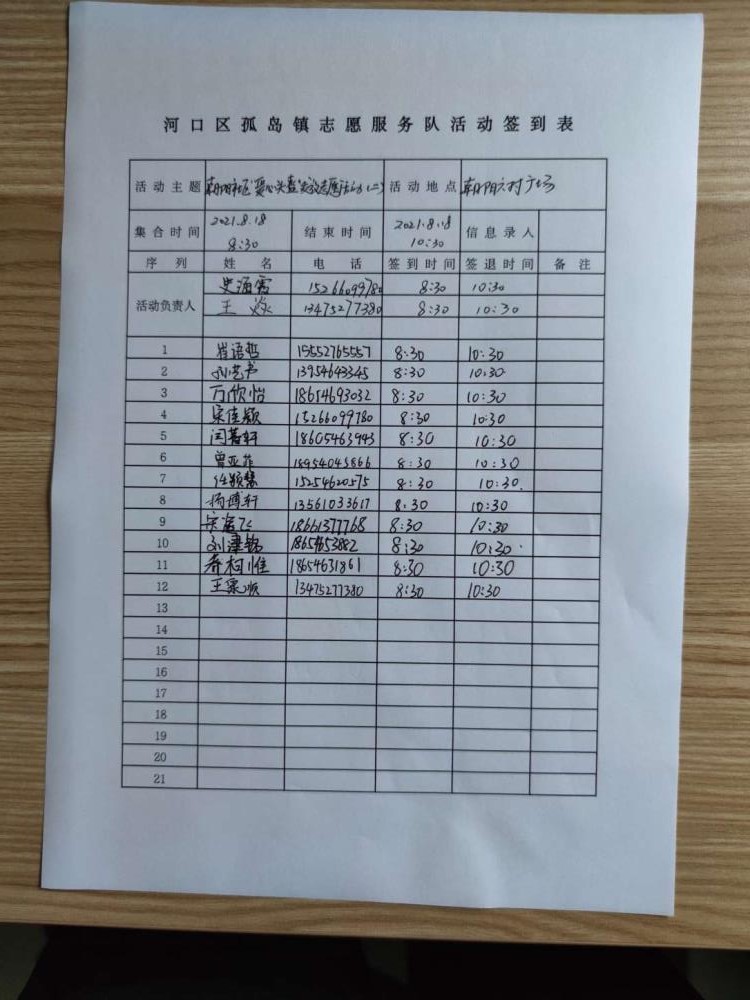 河口区孤岛镇志愿服务队活动签到表
活动主题 朝阳社区"爱心 志愿活动(二) 活动地点 朝阳六村广场
集合时间 2021.8.18 8:30 结束时间 2021.8.18 10:30 信息录入
序列 姓名 电话 签到时间 签退时间 备注
活动负责人 史海霞 15266099780 8:30 10:30
王 13475277380 8:30 10:30
1 崔语哲 15552765557 8:30 10:30
2 孙艺书 13954643345 8:30 10:30
3 万欣怡 18654693032 8:30 10:30
4 宋佳颖 15266099780 8:30 10:30
5 闫 轩 18605463443 8:30 10:30
6 曾亚菲 18954045866 8:30 10:30
7 任颖慧 15254620575 8:30 10:30
8 杨博轩 13561033617 8:30 10:30
9 宋 飞 18661377768 8:30 10:30
10 刘 1865453882 8:30 10:30
11 柯惟 18654631861 8:30 10:30
12 王 顺 13475277380 8:30 10:30
13
14
15
16
17
18
19
20
21